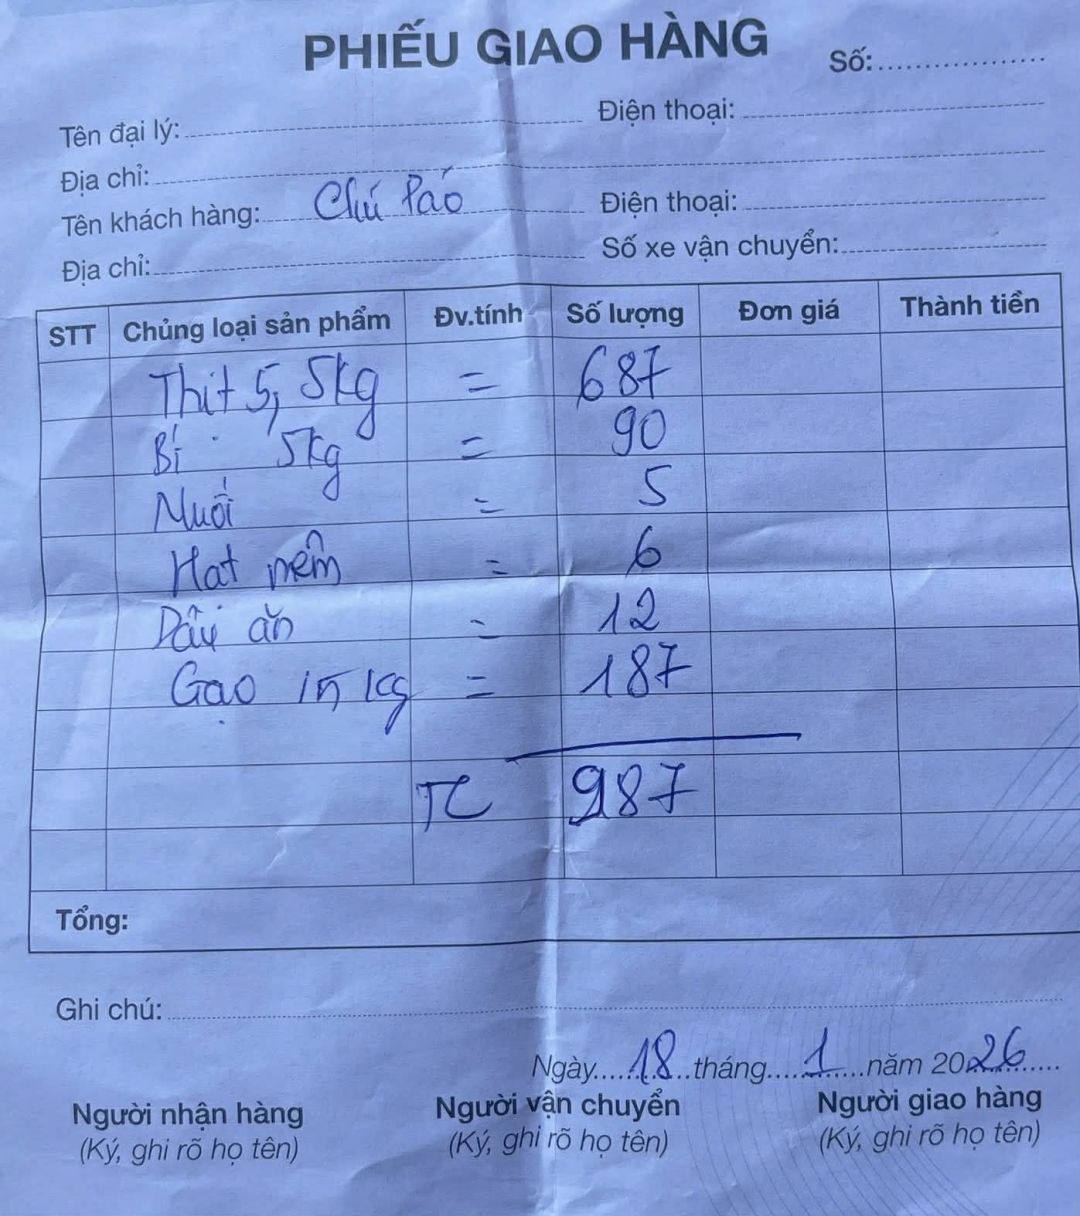 PHIẾU GIAO HÀNG
Số:
Tên đại lý:
Điện thoại:
Địa chỉ:
Tên khách hàng: Chú Páo
Điện thoại:
Địa chỉ:
Số xe vận chuyển:
STT Chủng loại sản phẩm Đv.tính Số lượng Đơn giá Thành tiền
Thit 5,5kg = 687
Bí 5kg = 90
Muối = 5
Hat nêm = 6
Dầu ăn = 12
Gạo 15 kg = 187
TC 987
Tổng:
Ghi chú:
Ngày 18 tháng 1 năm 2026
Người nhận hàng Người vận chuyển Người giao hàng
(Ký, ghi rõ họ tên) (Ký, ghi rõ họ tên) (Ký, ghi rõ họ tên)